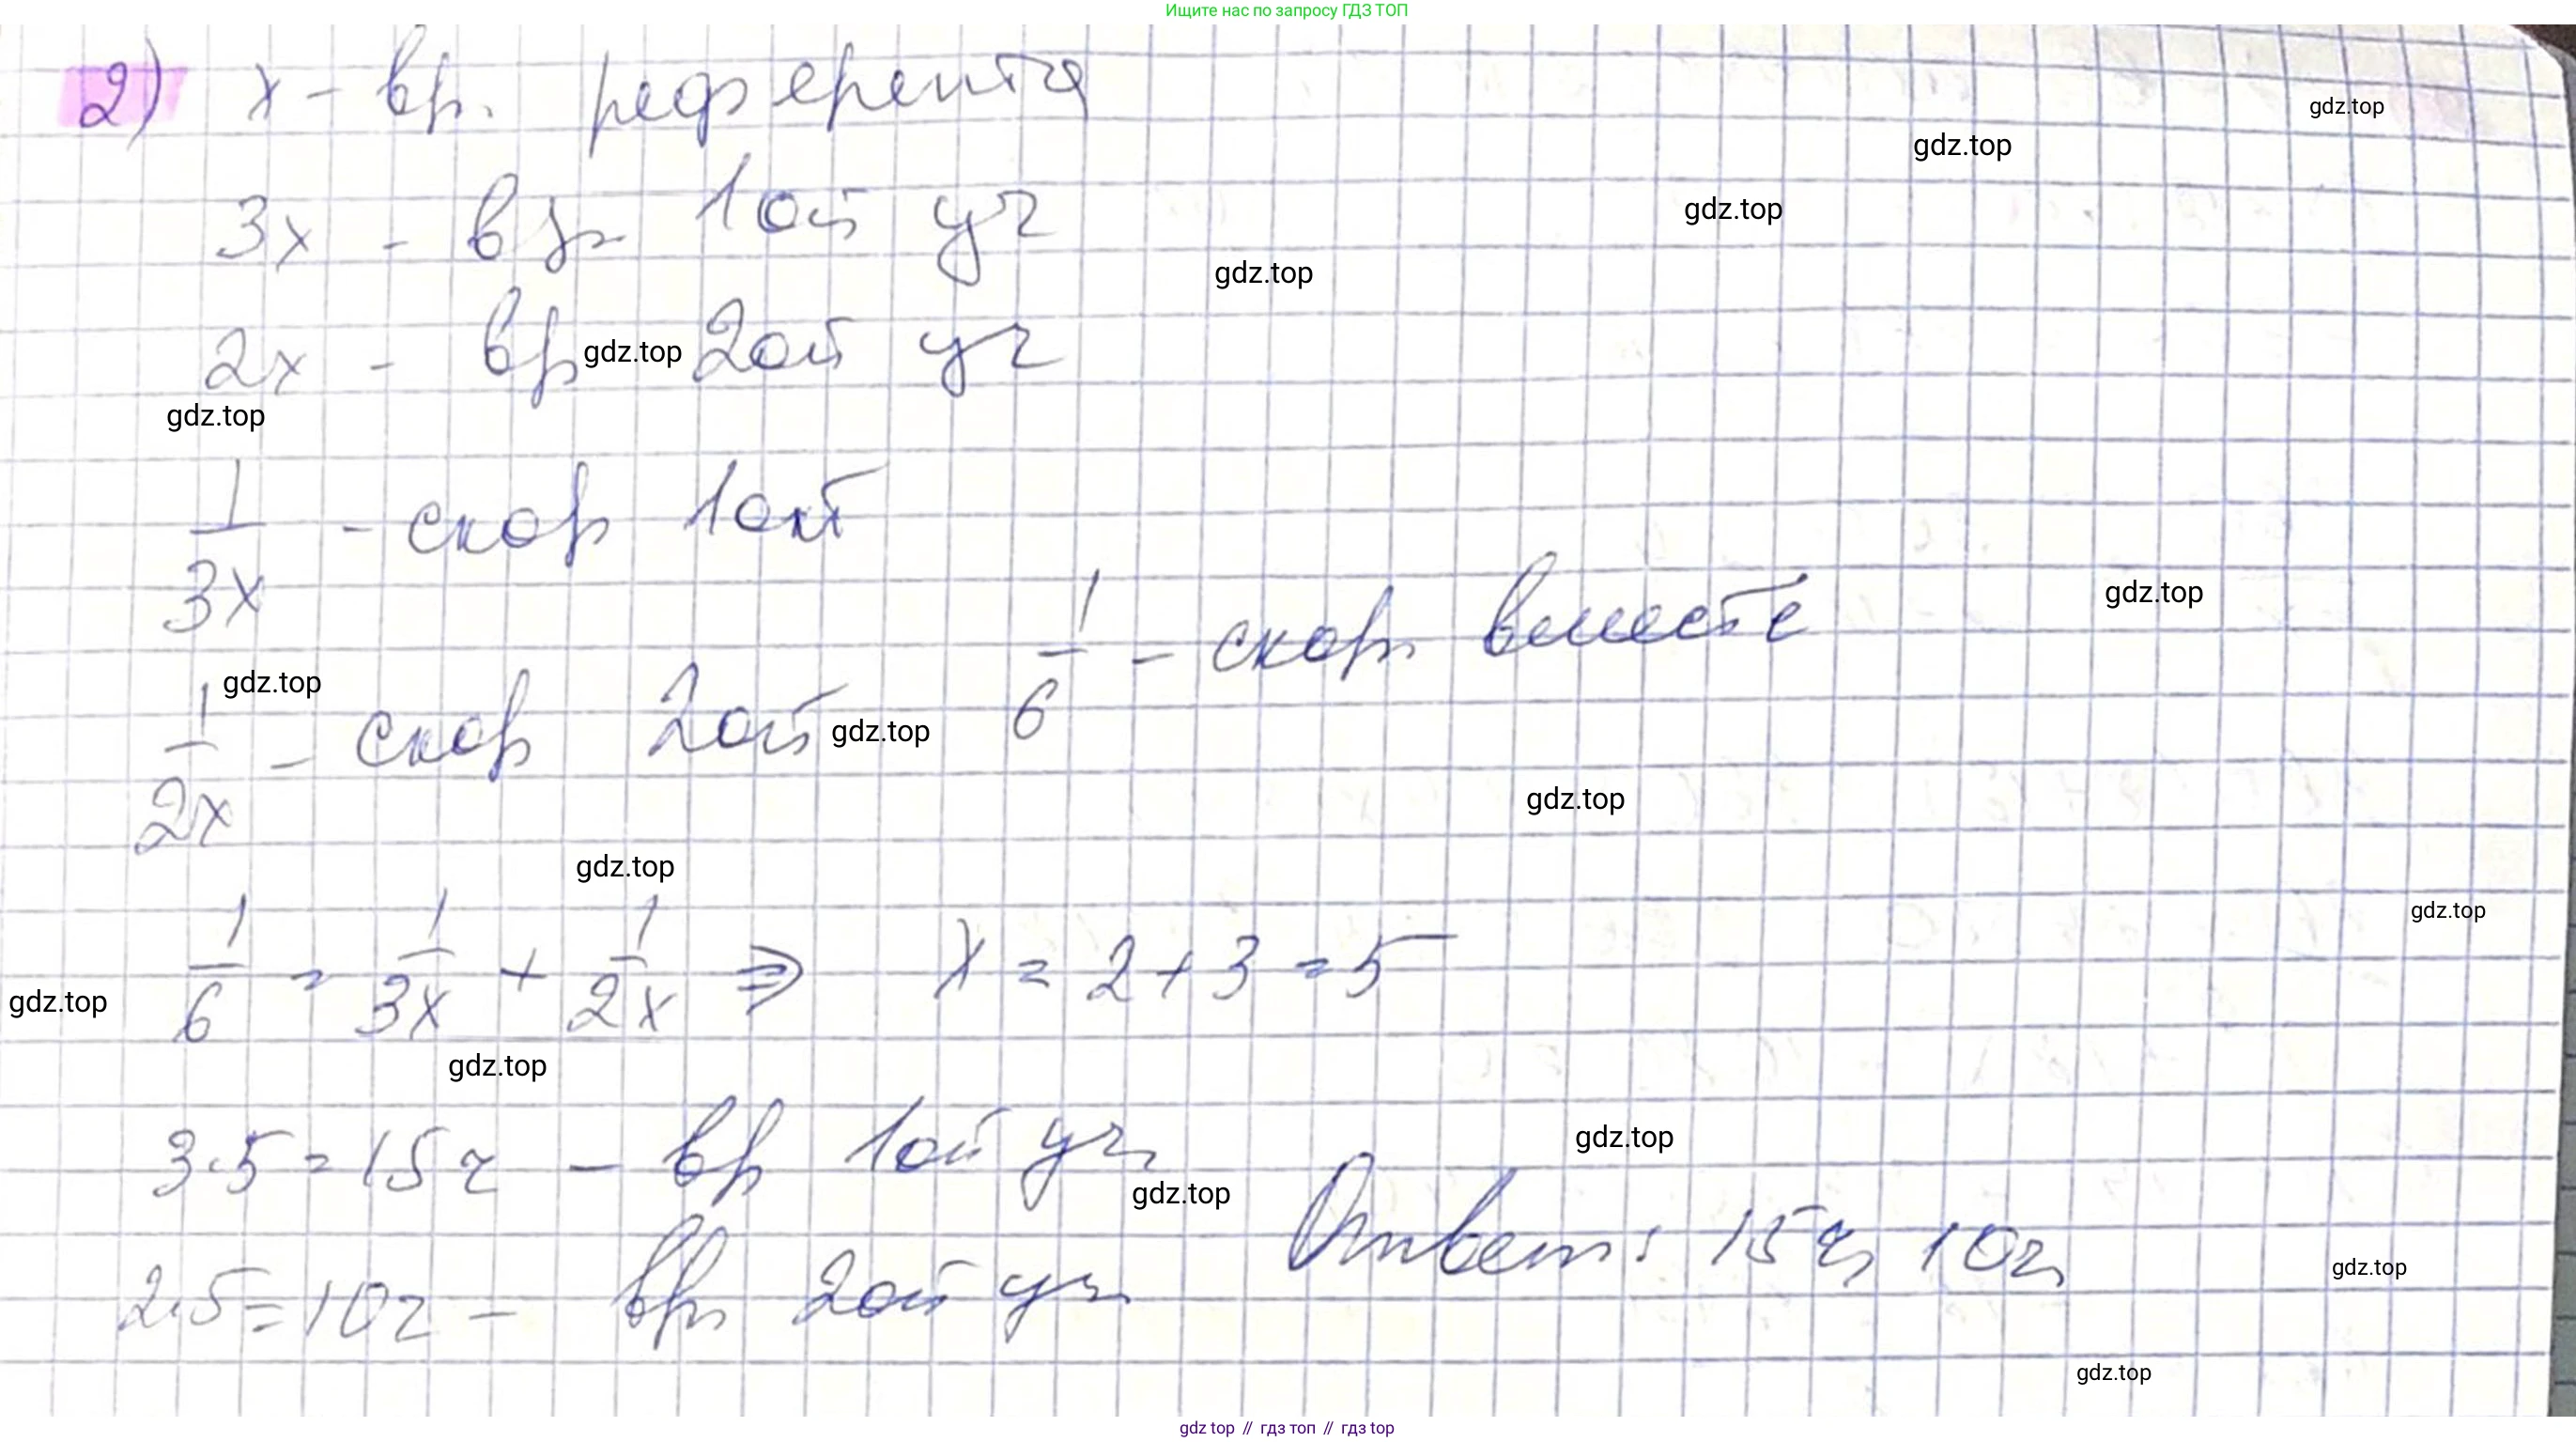 Ищите нас по запросу ГДЗ ТОП
2) x - вр. референта
gdz.top
gdz.top
3x - вр 1ой уч
gdz.top
gdz.top
2x - вр 2ой уч
gdz.top
gdz.top
1/3x - скор 1ой
1/6 - скор вместе
gdz.top
gdz.top
1/2x - скор 2ой
gdz.top
gdz.top
gdz.top
gdz.top
1/6 = 1/3x + 1/2x ⇒ x = 2 + 3 = 5
gdz.top
gdz.top
3·5 = 15 ч - вр 1ой уч
gdz.top
gdz.top
Ответ: 15ч, 10ч
2·5 = 10ч - вр 2ой уч
gdz.top
gdz.top
gdz top // гдз топ // гдз top